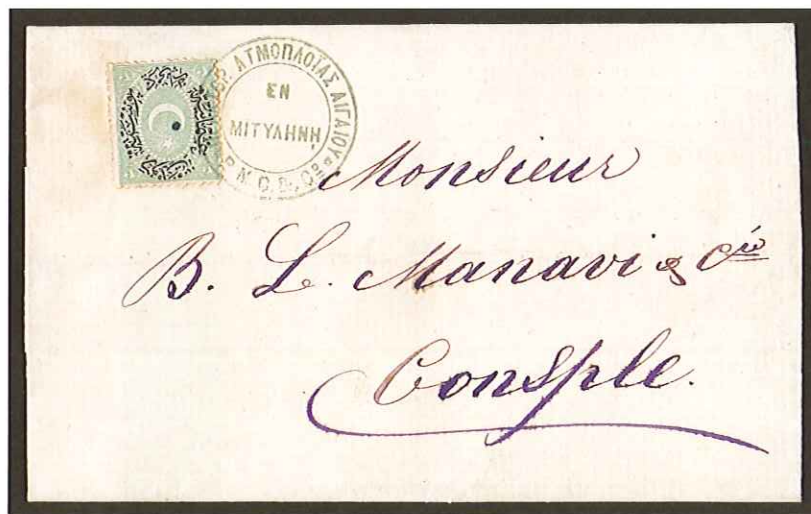 ΑΤΜΟΠΛΟΪΑΣ ΑΙΓΑΙΟΥ
ΕΝ
ΜΙΤΥΛΗΝΗ
N. C. B. Cⁿ
Monsieur
B. L. Manavi & Cie
Consple.